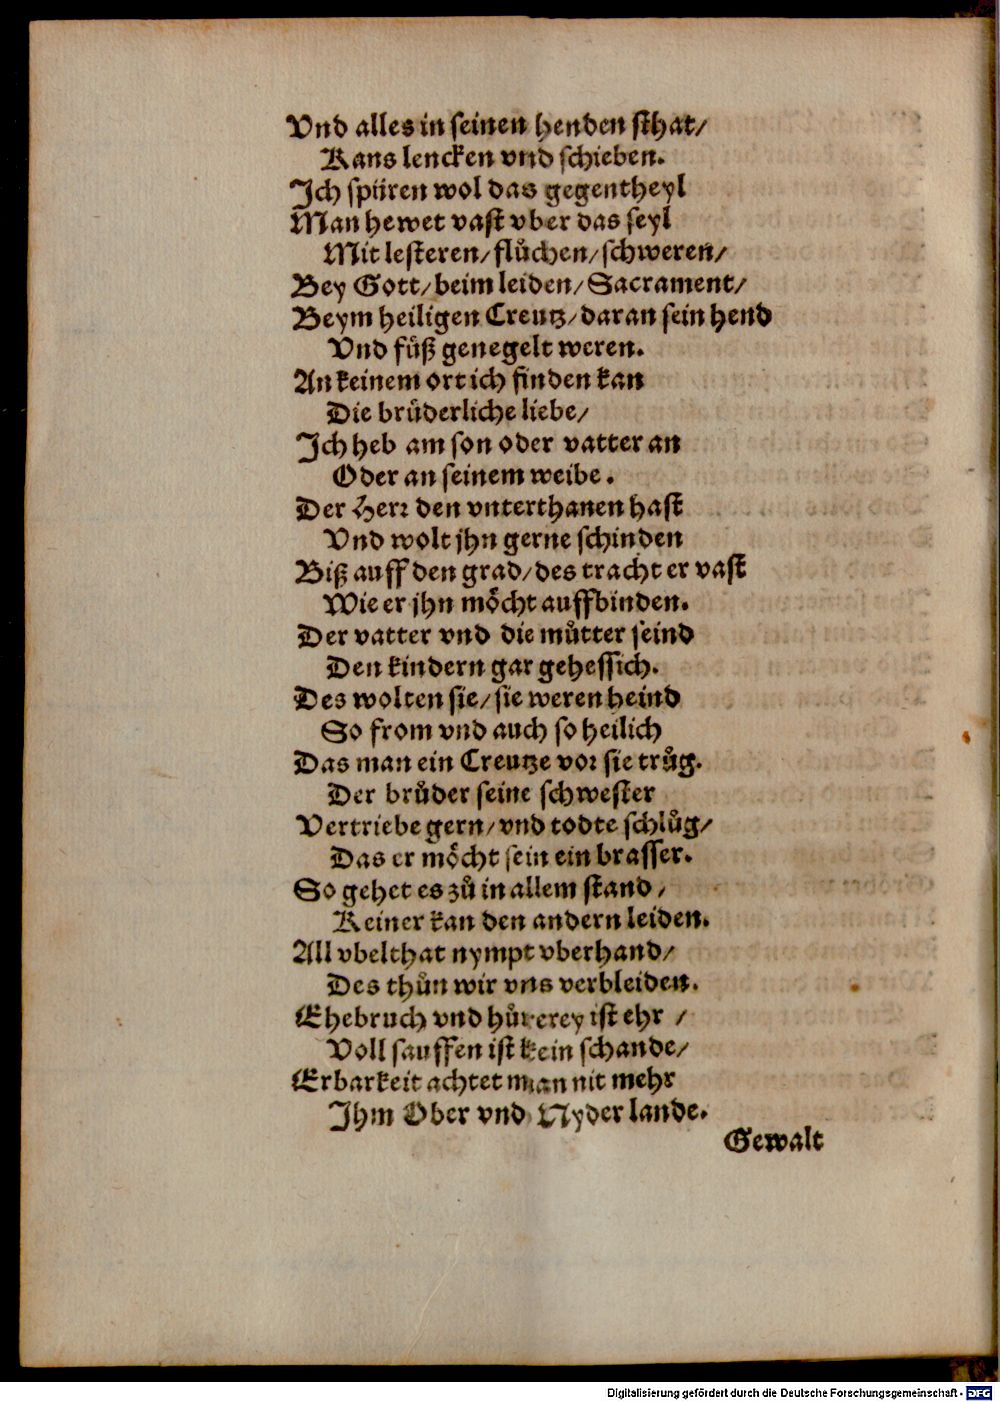 Vnd alles in seinen henden sthat/
Kans lencken vnd schieben.
Ich spüren wol das gegentheyl
Man hewet vast vber das seyl
Mit lesteren/ flůchen/ schweren/
Bey Gott/ beim leiden/ Sacrament/
Beym heiligen Creutz/ daran sein hend
Vnd fůß genegelt weren.
An keinem ort ich finden kan
Die brůderliche liebe/
Ich heb am son oder vatter an
Oder an seinem weibe.
Der Herr den vnterthanen hast
Vnd wolt jhn gerne schinden
Biß auff den grad/ des tracht er vast
Wie er jhn moͤcht auffbinden.
Der vatter vnd die můtter seind
Den kindern gar gehessich.
Des wolten sie/ sie weren heind
So from vnd auch so heilich
Das man ein Creutze vor sie trůg.
Der brůder seine schwester
Vertriebe gern/ vnd todte schlůg/
Das er moͤcht sein ein brasser.
So gehet es zů in allem stand/
Keiner kan den andern leiden.
All vbelthat nympt vberhand/
Des thůn wir vns verbleiden.
Ehebruch vnd hůrerey ist ehr /
Voll sauffen ist kein schande/
Erbarkeit achtet man nit mehr
Ihm Ober vnd Nyder lande.
Gewalt
Digitalisierung gefördert durch die Deutsche Forschungsgemeinschaft - DFG